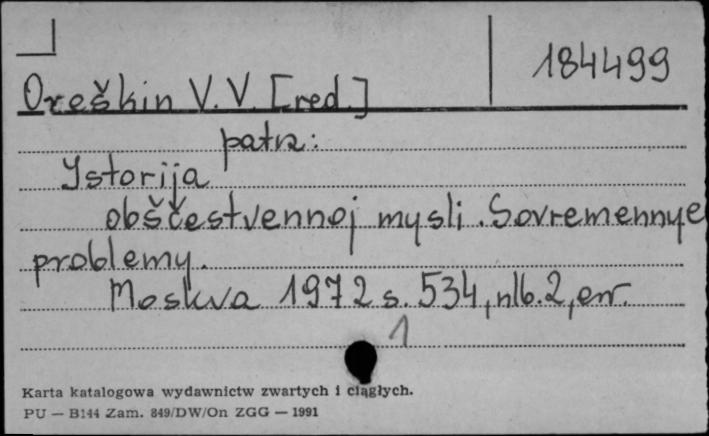 184499
Oreškin V. V. [red.]
patrz:
Istorija
obščestvennoj mysli. Sovremennye
problemy.
Moskva 1972 s. 534, nlb. 2, err.
1
Karta katalogowa wydawnictw zwartych i ciągłych.
PU — B144 Zam. 849/DW/On ZGG — 1991